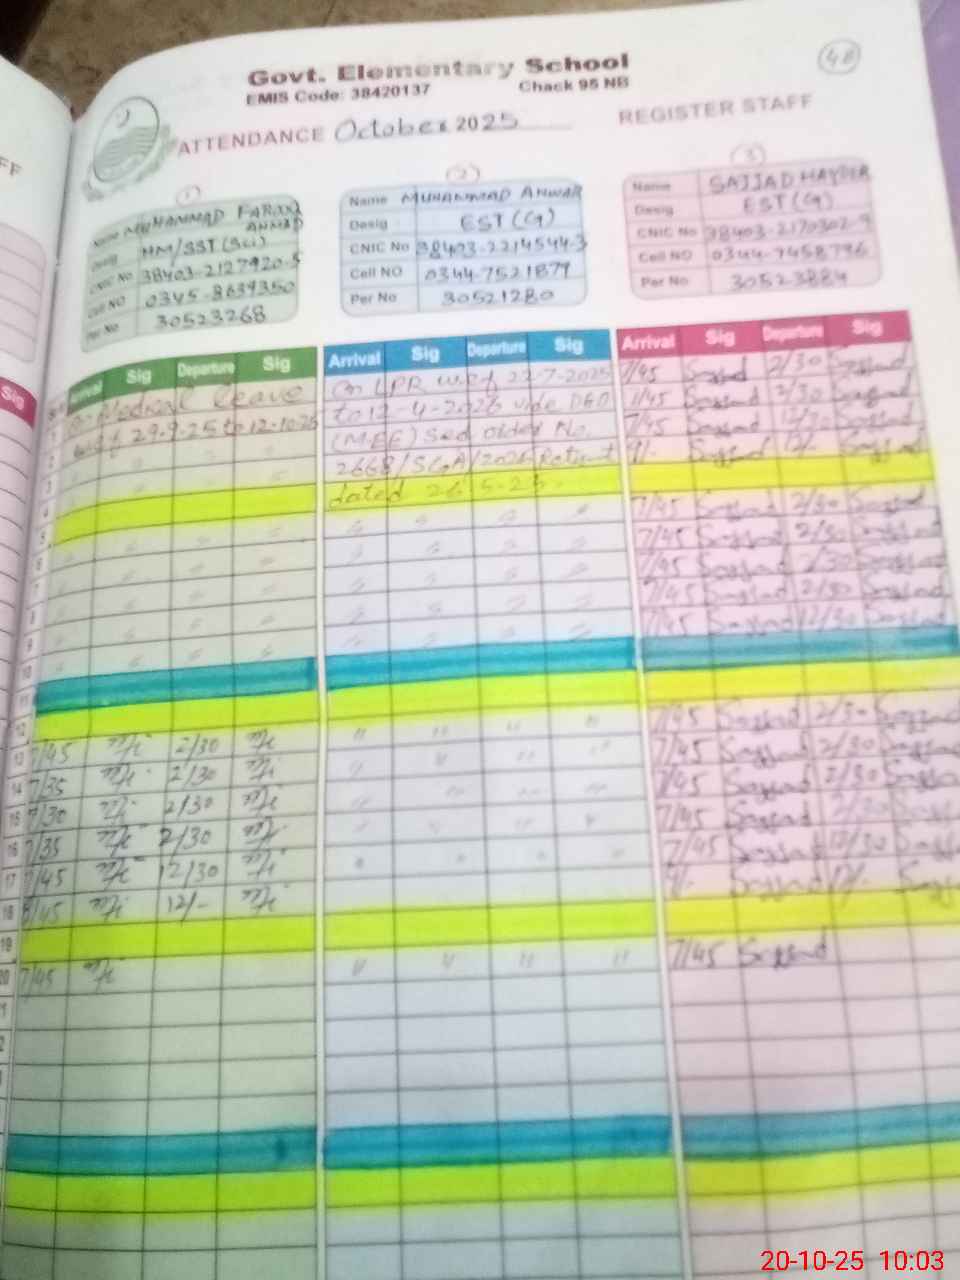 48
Govt. Elementary School
EMIS Code: 38420137 Chack 95 NB
ATTENDANCE October 2025 REGISTER STAFF
FF
Sig
1
Name MUHAMMAD FAROOQ AHMAD
Desig HM/SST(Sci)
CNIC No 38403-2127920-5
Cell NO 0345-8639350
Per No 30523268
2
Name MUHAMMAD ANWAR
Desig EST(G)
CNIC No 38403-2214544-3
Cell NO 0344-7521879
Per No 30521280
3
Name SAJJAD HAYDER
Desig EST(G)
CNIC No 38403-2170302-9
Cell NO 0344-7458796
Per No 30523884
Arrival Sig Departure Sig Arrival Sig Departure Sig Arrival Sig Departure Sig
1 on Medical leave On LPR wef 22-7-2025 7/45 Sajjad 2/30 Sajjad
2 wef 29-9-25 to 12-10-25 to 12-4-2026 vide DEO 7/45 Sajjad 2/30 Sajjad
3 " " " " (M-EE) Sgd order No. 7/45 Sajjad 12/30 Sajjad
4 " " " " 2668/ 9/- Sajjad 12/- Sajjad
5 dated 26-5-25.
6 " " " " " " " " 7/45 Sajjad 2/30 Sajjad
7 " " " " " " " " 7/45 Sajjad 2/30 Sajjad
8 " " " " " " " " 7/45 Sajjad 2/30 Sajjad
9 " " " " " " " " 7/45 Sajjad 2/30 Sajjad
10 " " " " " " " " 7/45 Sajjad 12/30 Sajjad
11
12
13 7/45 2/30 " " " " 7/45 Sajjad 2/30 Sajjad
14 7/35 2/30 " " " " 7/45 Sajjad 2/30 Sajjad
15 7/30 2/30 " " " " 7/45 Sajjad 2/30 Sajjad
16 7/35 2/30 " " " " 7/45 Sajjad 2/30 Sajjad
17 7/45 12/30 " " " " 7/45 Sajjad 12/30 Sajjad
18 8/45 12/- 9/- Sajjad 12/- Sajjad
19
20 7/45 " " " " 7/45 Sajjad
20-10-25 10:03